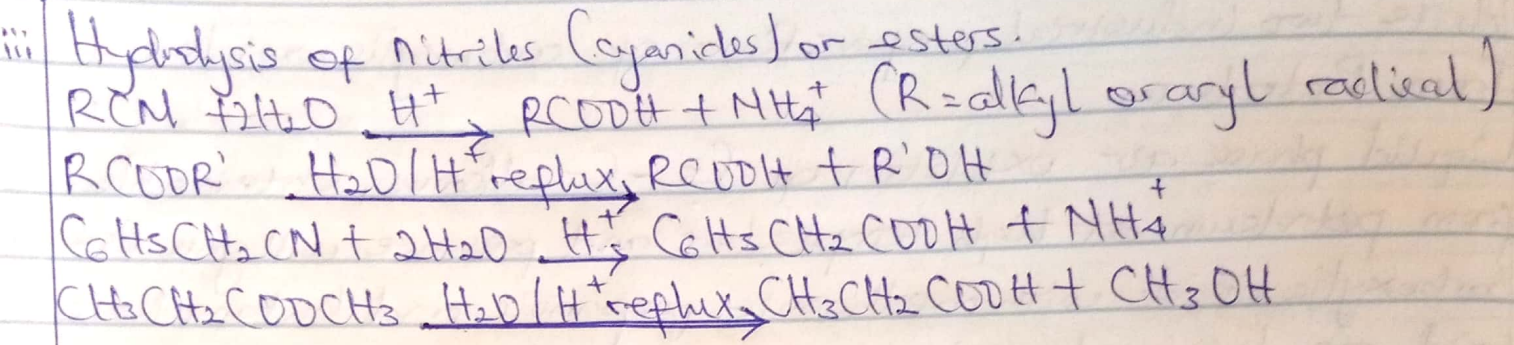 iii Hydrolysis of nitriles (cyanides) or esters.
RCN +2H₂O H⁺→ RCOOH + NH₄⁺ (R=alkyl or aryl radical)
RCOOR' H₂O/H⁺reflux→ RCOOH + R'OH
C₆H₅CH₂CN + 2H₂O H⁺→ C₆H₅CH₂COOH + NH₄⁺
CH₃CH₂COOCH₃ H₂O/H⁺reflux→ CH₃CH₂COOH + CH₃OH